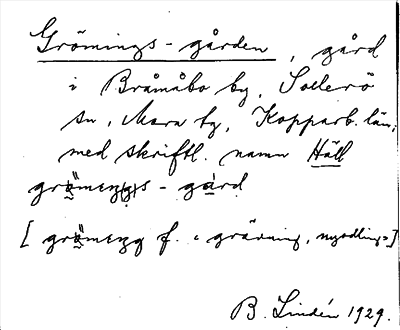 Grömings-gården, gård
i Bråmåbo by, Sollerö
sn, Mora tg, Kopparb. län,
med skriftl. namn Häll
grömeŋ(g)s-gård
[grömeŋg f. "grävning, nyodling"]
B. Lindén 1929.